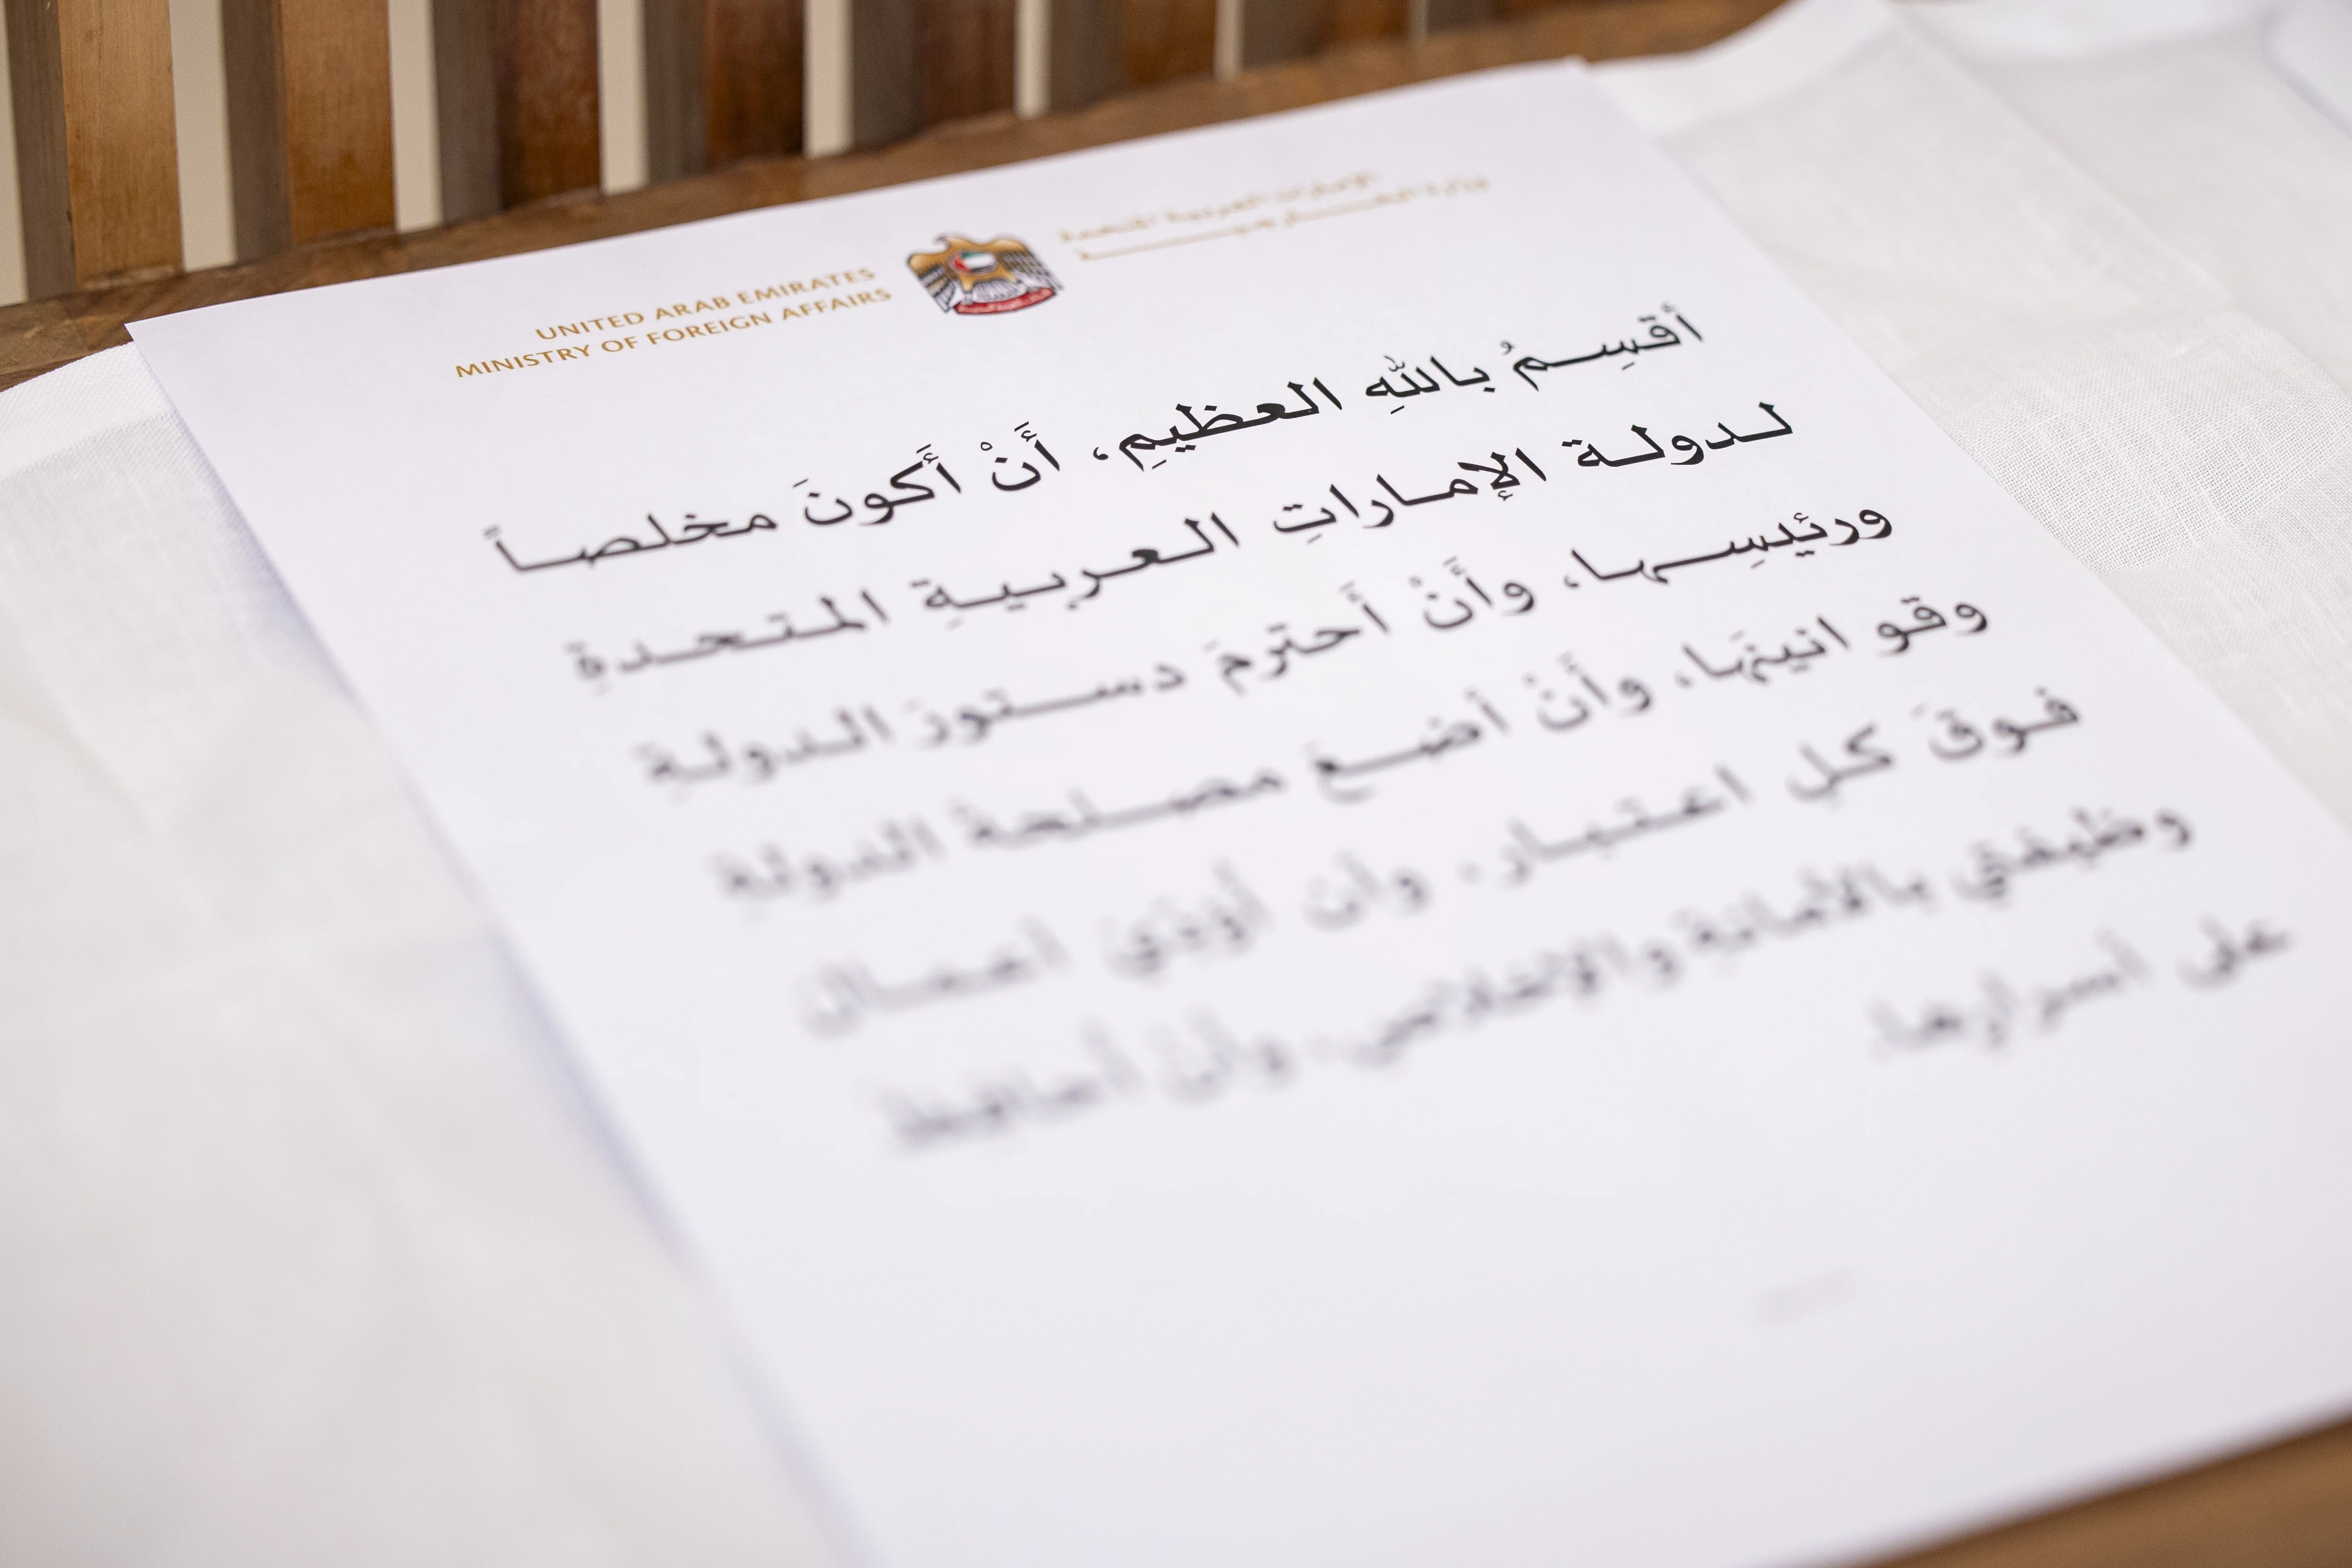 UNITED ARAB EMIRATES
MINISTRY OF FOREIGN AFFAIRS
الإمارات العربية المتحدة
وزارة الخارجية
أقسِمُ باللهِ العظيمِ، أَنْ أَكونَ مخلصاً
لدولة الإماراتِ العربيةِ المتحدةِ
ورئيسِها، وأَنْ أَحترمَ دستورَ الدولةِ
وقوانينَها، وأَنْ أضعَ مصلحةَ الدولةِ
فوقَ كلِ اعتبار، وأن أؤدّيَ أعمال
وظيفتي بالأمانةِ والإخلاصِ، وأنْ أحافِظَ
على أسرارِها.